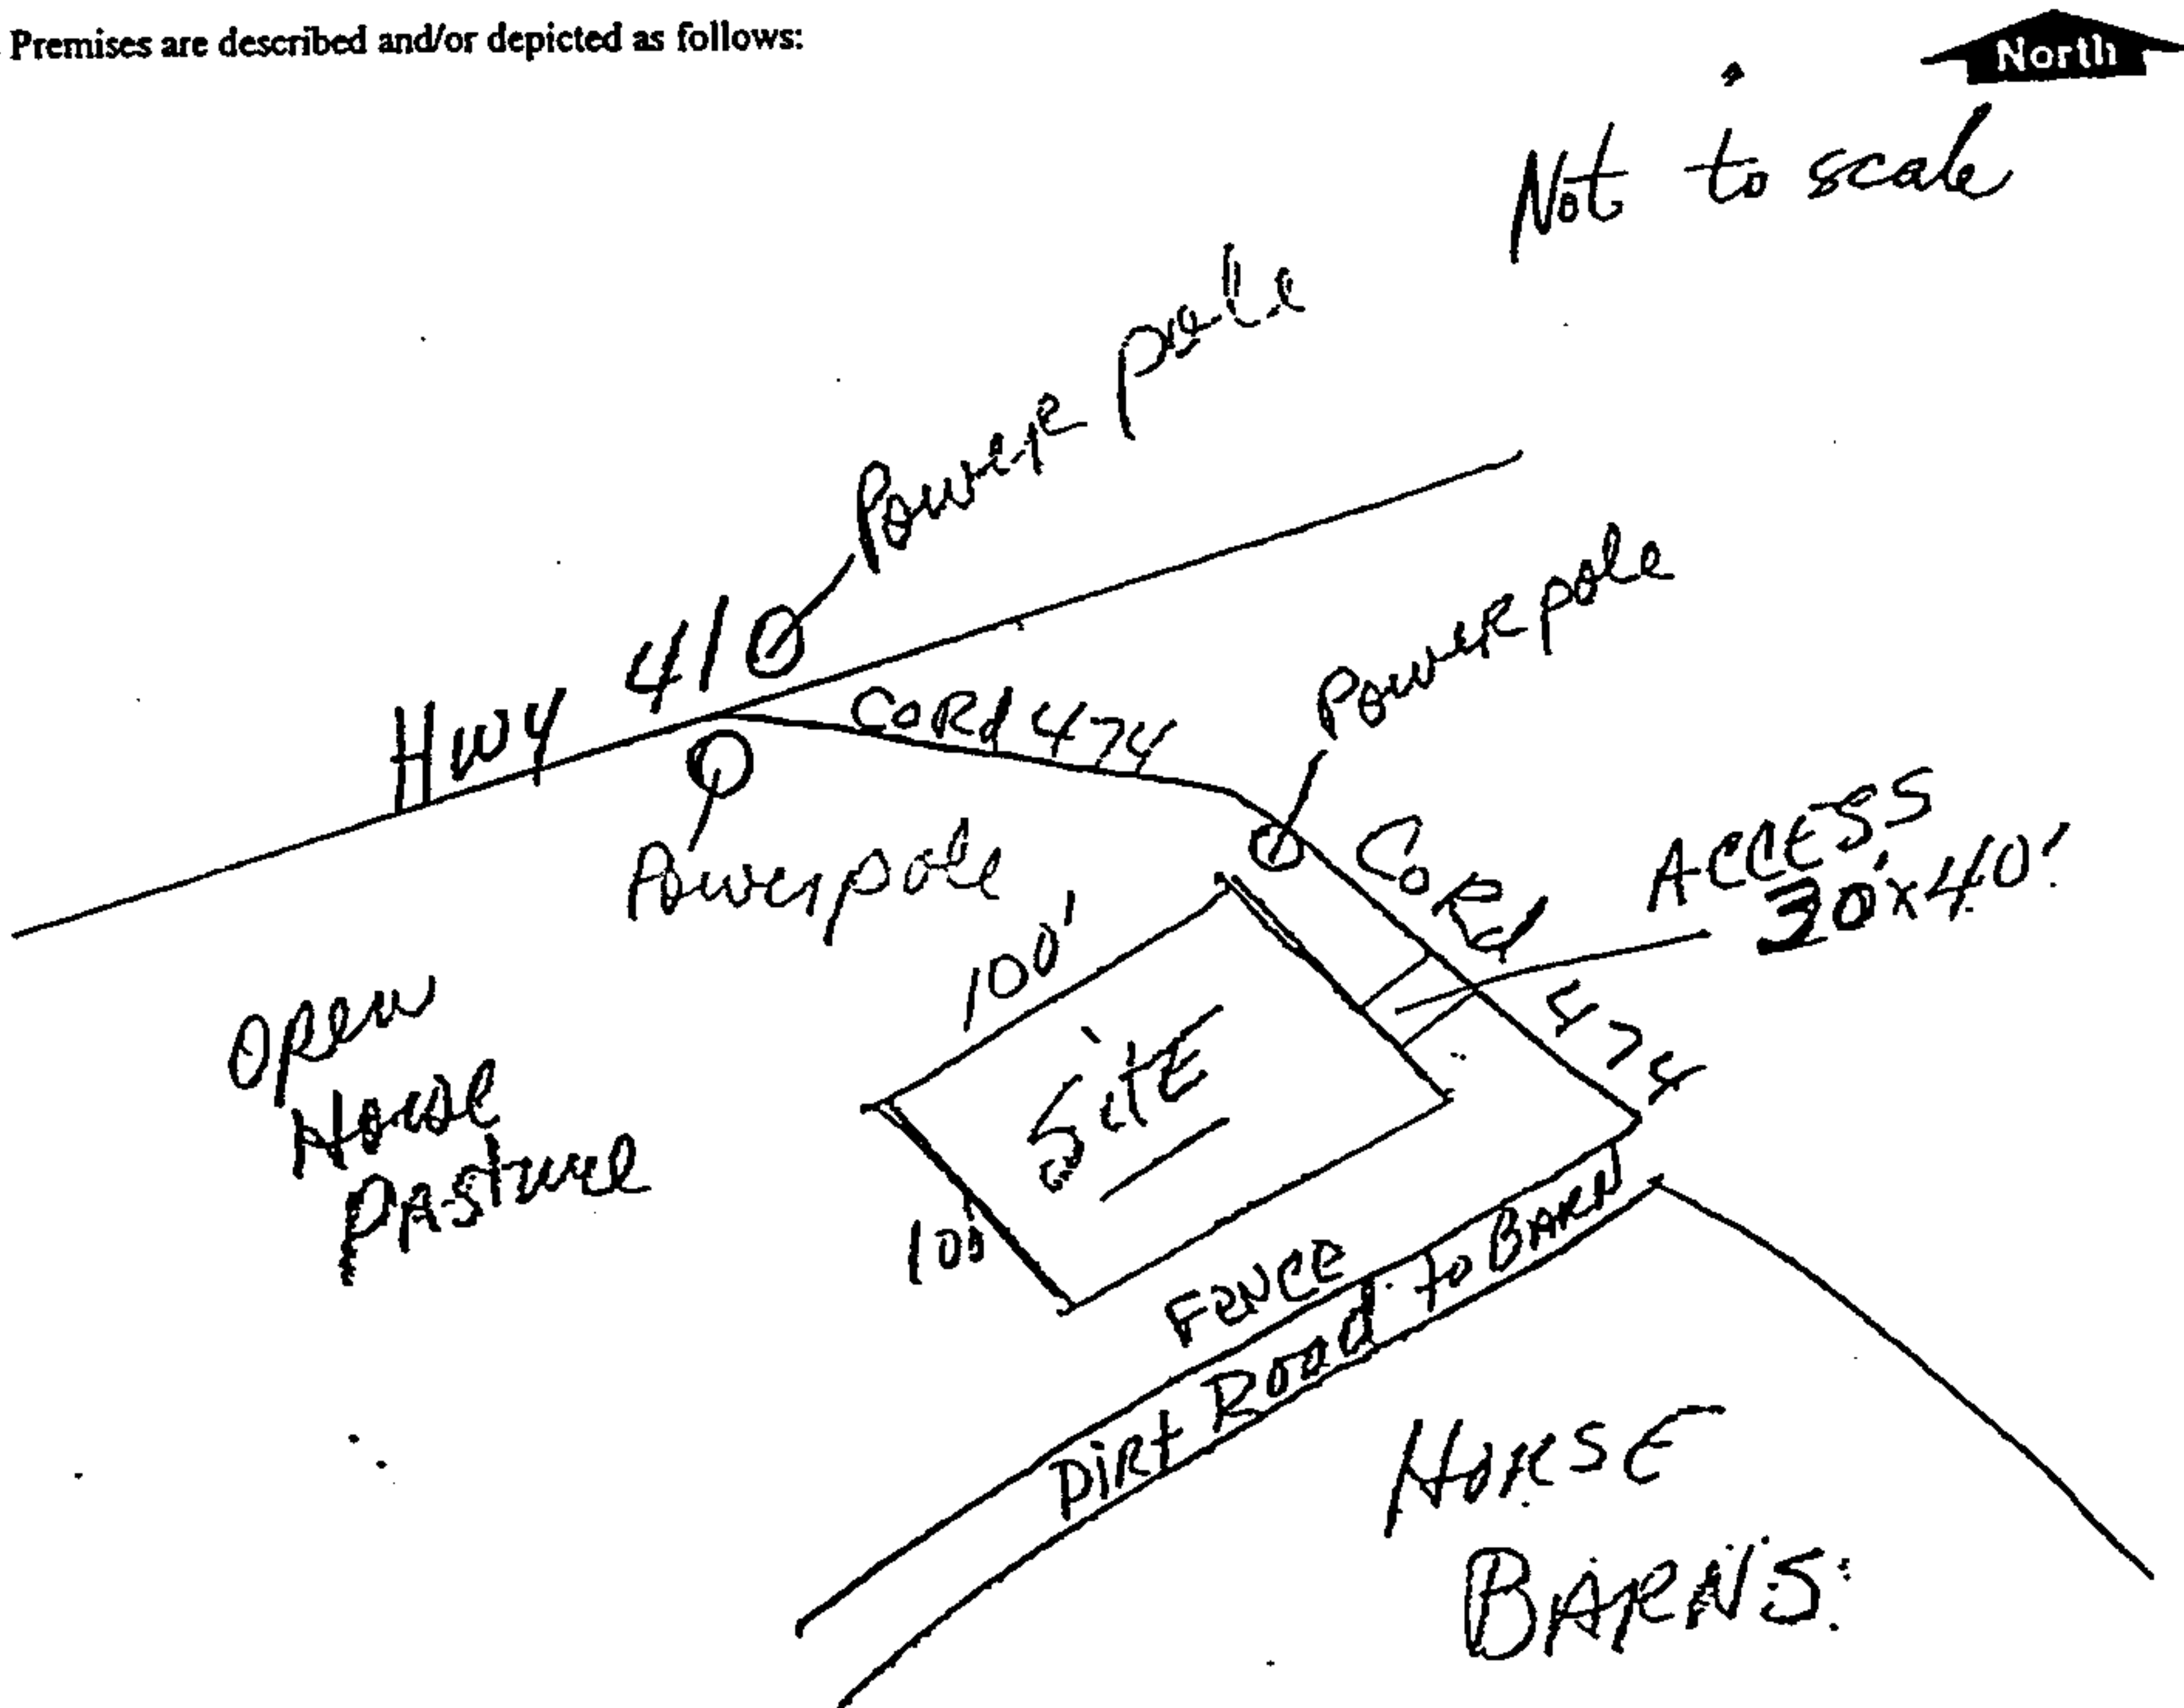 Premises are described and/or depicted as follows:
North
Not to scale
Power pole
Power pole
HWY 410
CoRd 474
Power pole
CoRd 474
ACCESS
30'x40'
100'
Open
Horse
Pasture
SitE
100'
FENCE
Dirt Road to BARN
HORSE
BARNS